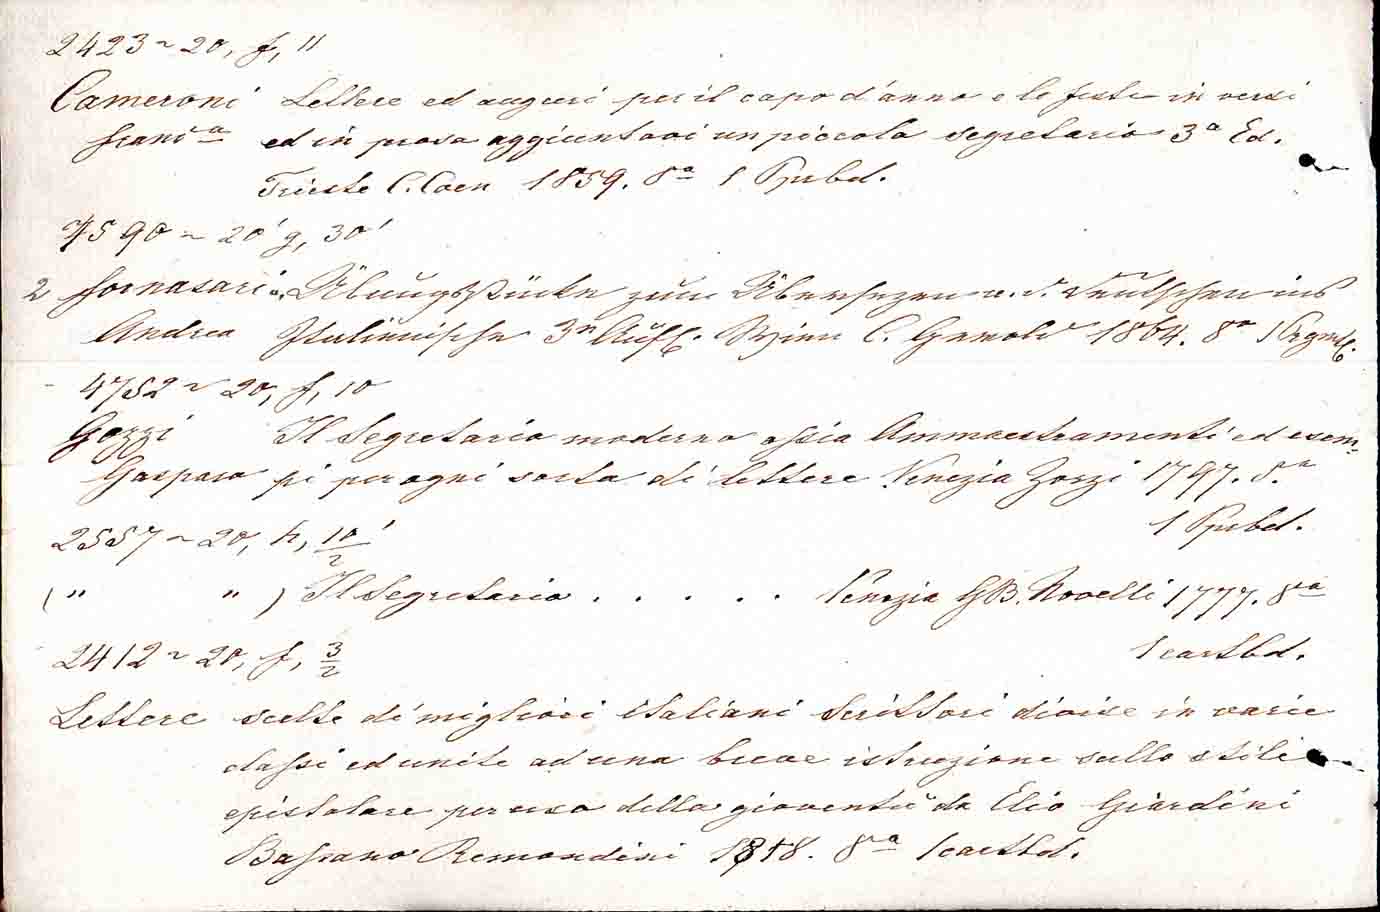 2423 ~ 20, f, 11
Cameroni Lettere ed auguri per il capo d'anno e le feste in versi
Franc.ª ed in prosa aggiuntovi un piccolo segretario 3ª Ed.
Trieste C. Coen 1859. 8ª 1 Pprbd.
4590 ~ 20' g, 30'
2 Fornasari Übungsstücke zum Übersezen a. d. Deutschen ins
Andrea Italienische 3n Aufl. Wien C. Gerold 1864. 8ª
4752 ~ 20, f, 10
Gozzi Il Segretario moderno ossia Ammaestramenti ed esem-
Gasparo pi per ogni sorta di lettere Venezia Zorzi 1797. 8ª
1 Pprbd.
2557 ~ 20, h, 10'/2
( " " ) Il Segretario . . . . . Venezia GB. Novelli 1777. 8va
1 cartbd.
2412 ~ 20, f, 3/2
Lettere scelte di migliori italiani Scrittori divise in varie
classi ed unite ad una breve istruzione sullo stile
epistolare per uso della gioventù da Elia Giardini
Bassano Remondini 1818. 8va 1 cartbd.